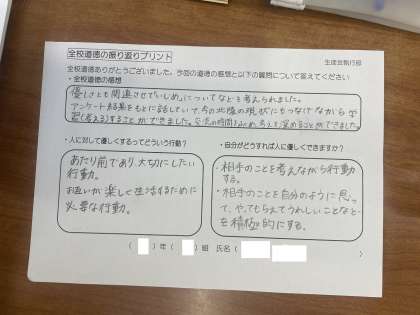 生徒会執行部
全校道徳の振り返りプリント
全校道徳ありがとうございました。今回の道徳の感想と以下の質問について答えてください
・全校道徳の感想
優しさとも関連させて「いじめ」についてなどを考えられました。
アンケート結果をもとに話していて、今の北陵の現状にもつなげながら学
習(考える)することができました。交流の時間もあり、考えを深めることができました。
・人に対して優しくするってどういう行動?
あたり前であり、大切にしたい
行動。
お互いが楽しく生活するために
必要な行動。
・自分がどうすれば人に優しくできますか?
・相手のことを考えながら行動
する。
・相手のことを自分のように思っ
て、やってもらえてうれしいことなど
を積極的にする。
( )年( )組 氏名( )